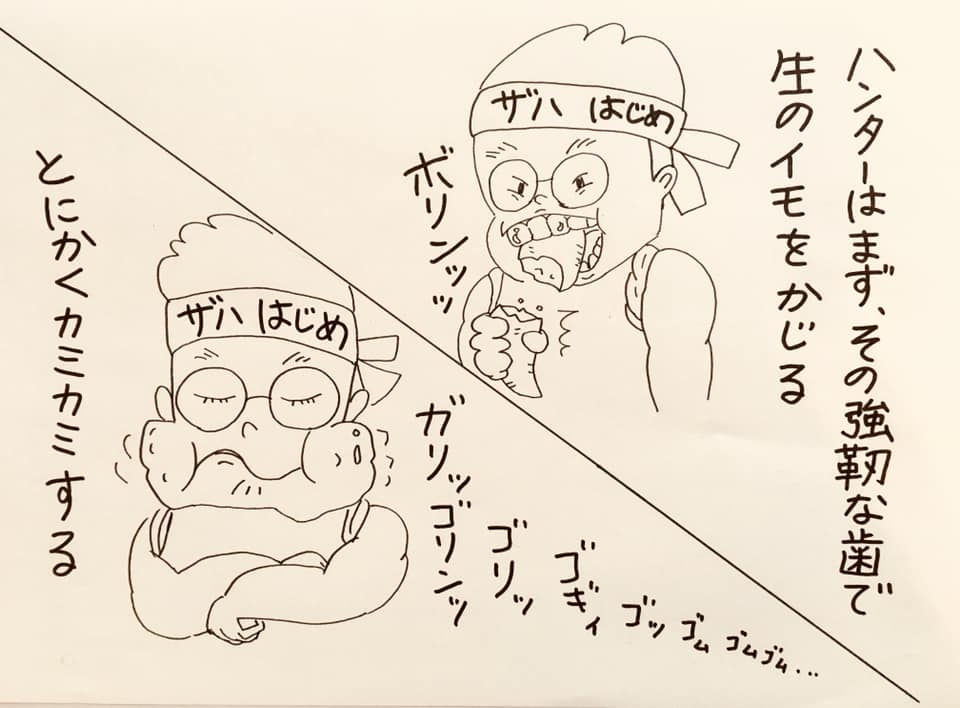 ハンターはまず、その強靭な歯で
生のイモをかじる
ザハ はじめ
ボリンッッ
とにかくカミカミする
ザハ はじめ
ガリッゴリンッ
ゴリッ
ゴギィ
ゴッ
ゴム
ゴムゴム...